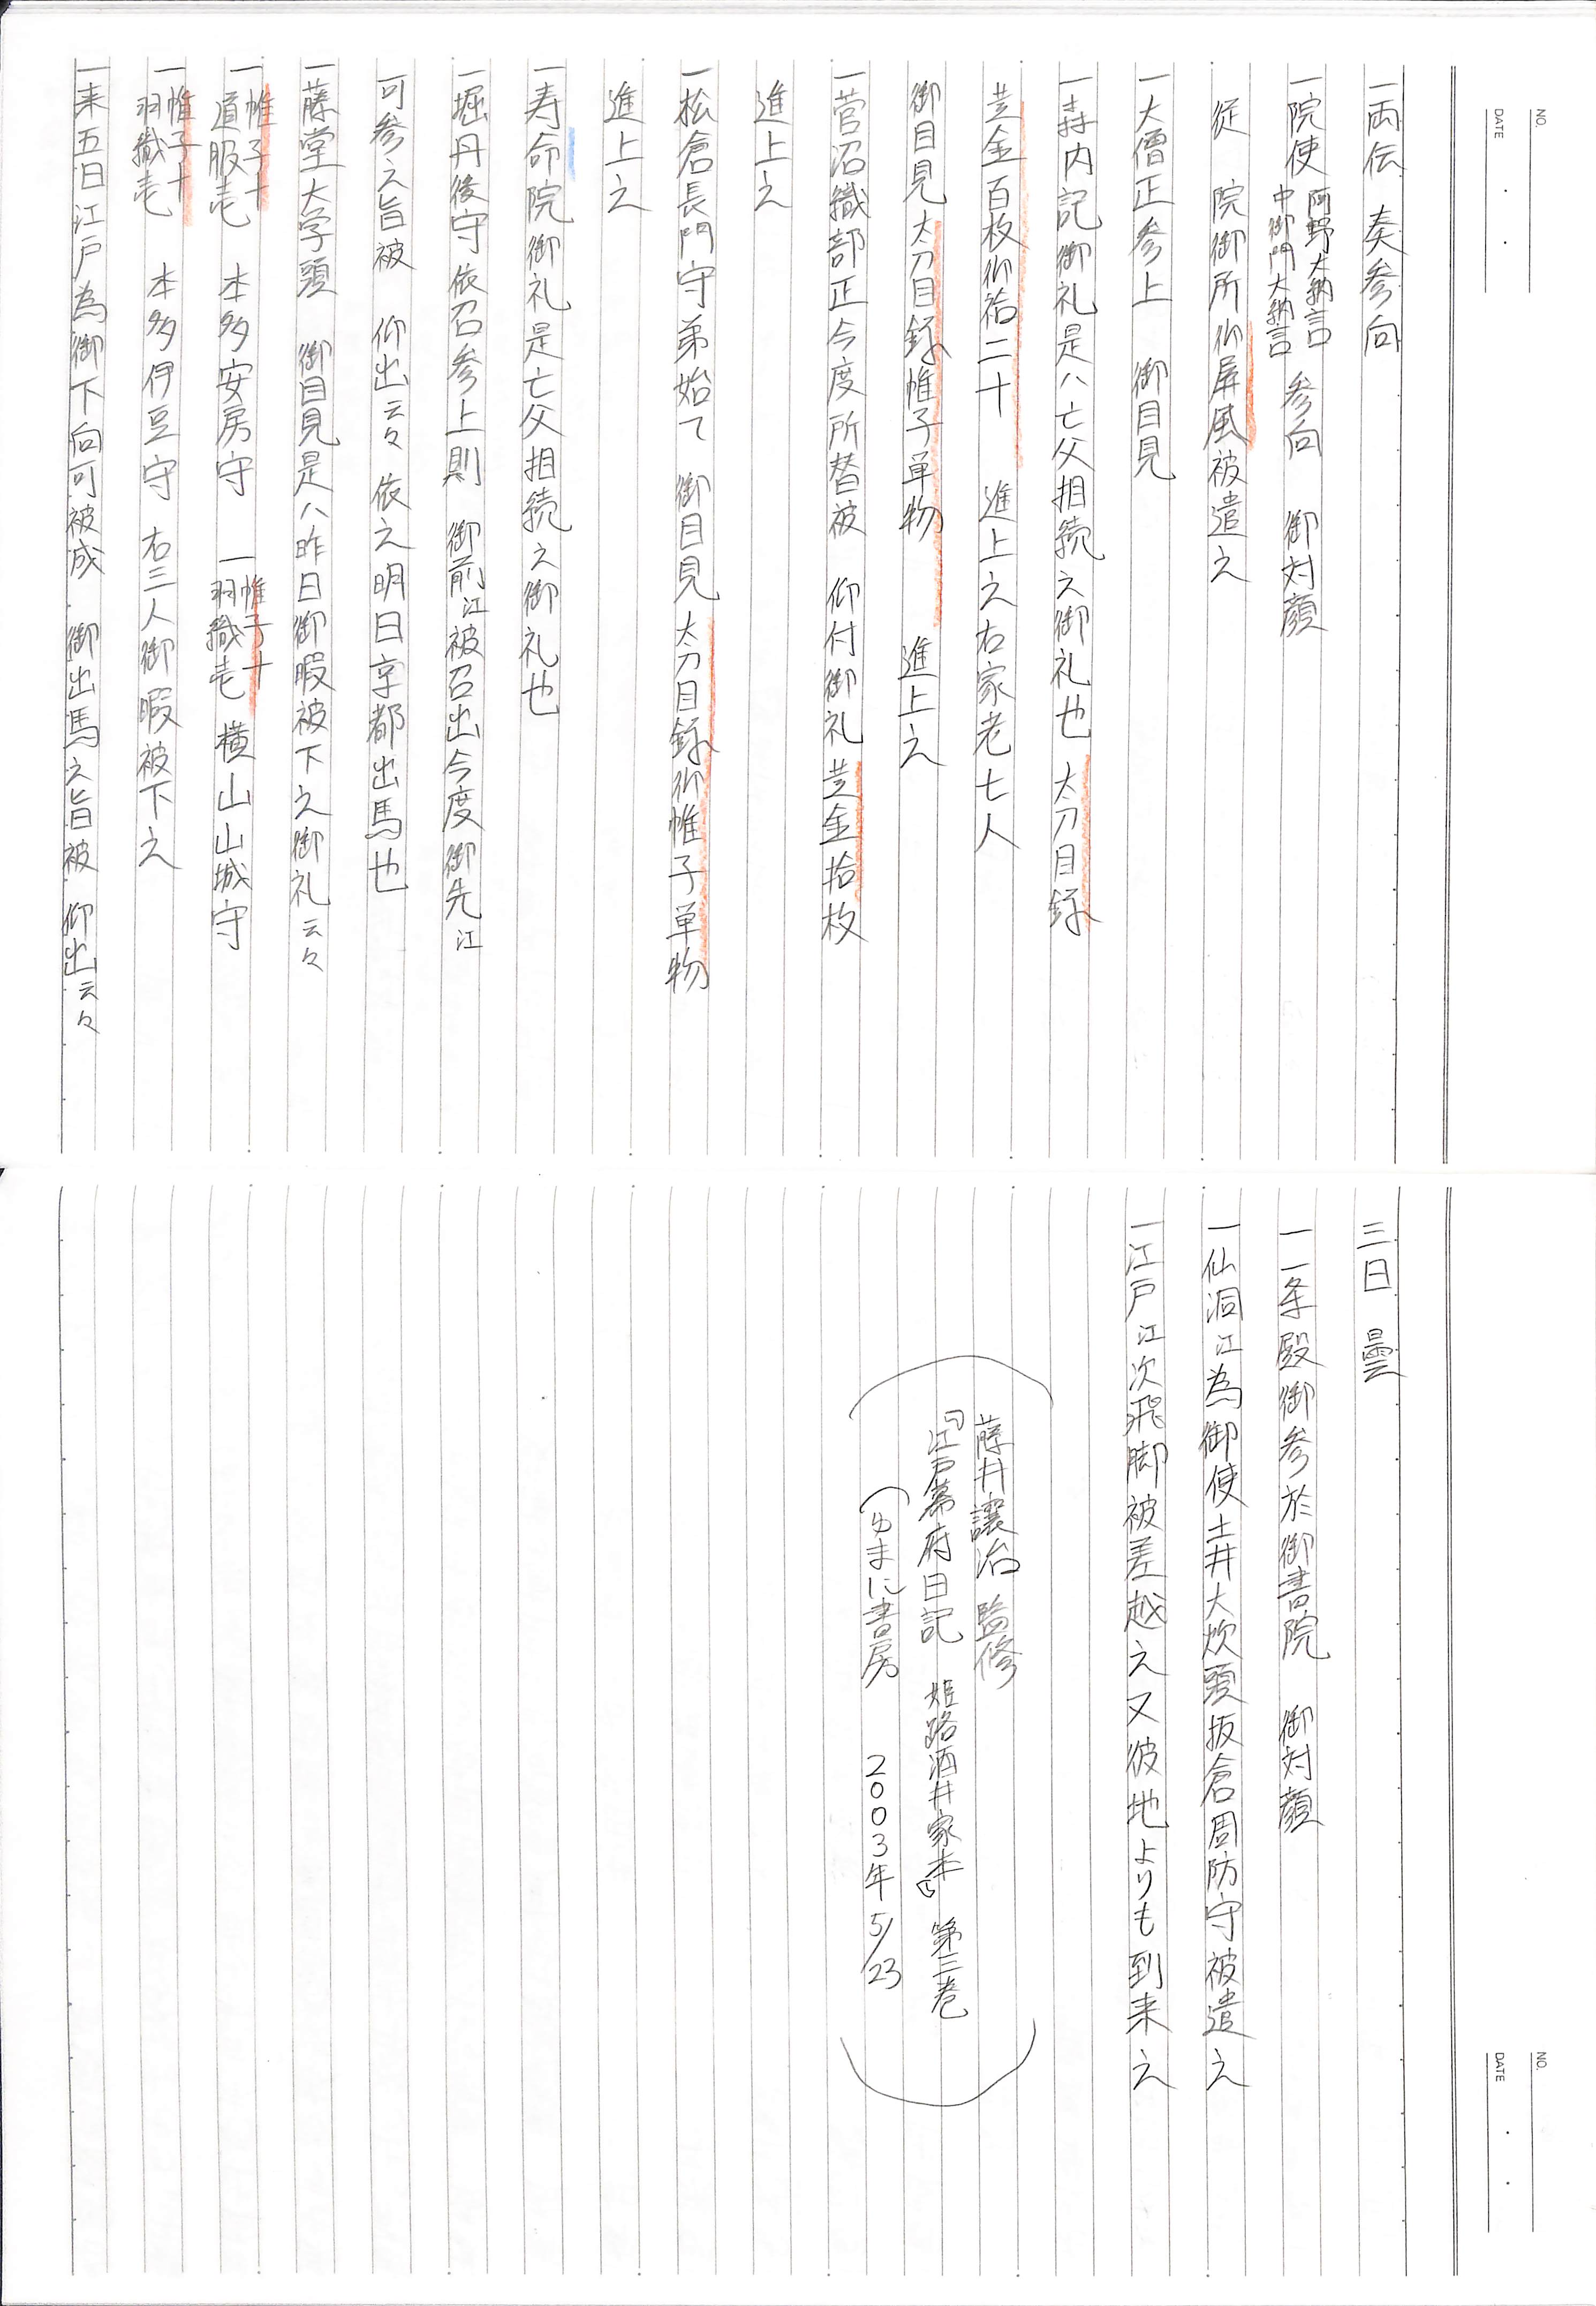 NO.
DATE
一両伝 奏参向
一院使 阿野大納言 中御門大納言 参向 御対顔
従 院御所仰屏風被遣之
一大僧正参上 御目見
一森内記御礼是ハ亡父相続之御礼也 太刀目録
黄金百枚仰袷二十 進上之右家老七人
御目見太刀目録帷子単物 進上之
一菅沼織部正今度所替被 仰付御礼黄金拾枚
進上之
一松倉長門守弟始て 御目見太刀目録仰帷子単物
進上之
一寿命院御礼是亡父相続之御礼也
一堀丹後守依召参上則 御前江被召出今度御先江
可参之旨被 仰出云々 依之明日京都出馬也
一藤堂大学頭 御目見是ハ昨日御暇被下之御礼云々
一帷子十 道服壱 本多安房守 一帷子十 羽織壱 横山山城守
一帷子十 羽織壱 本多伊豆守 右三人御暇被下之
一来五日江戸為御下向可被成 御出馬之旨被 仰出云々
NO.
DATE
三日 曇
一一条殿御参於御書院 御対顔
一仙洞江為御使土井大炊頭板倉周防守被遣之
一江戸江次飛脚被差越之又彼地よりも到来之
藤井讓治 監修
『江戸幕府日記 姫路酒井家本』 第三巻
(ゆまに書房 2003年 5/23